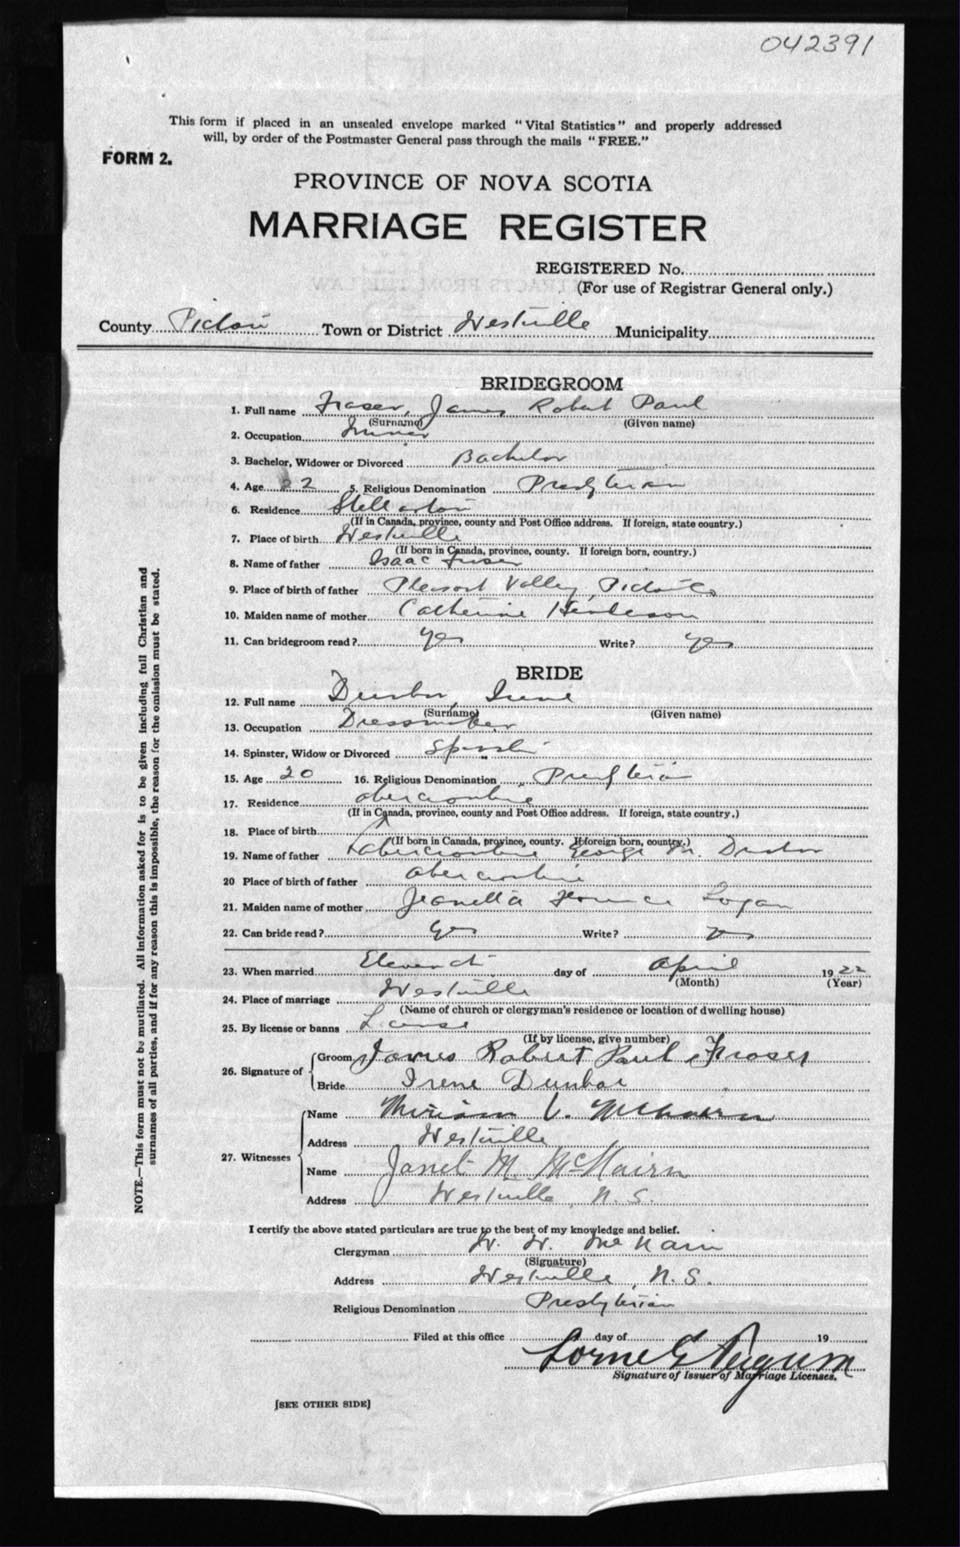 042391
This form if placed in an unsealed envelope marked "Vital Statistics" and properly addressed
will, by order of the Postmaster General pass through the mails "FREE."
FORM 2.
PROVINCE OF NOVA SCOTIA
MARRIAGE REGISTER
REGISTERED No.
(For use of Registrar General only.)
County Pictou Town or District Westville Municipality
BRIDEGROOM
1. Full name Fraser, James Robert Paul
(Surname) (Given name)
2. Occupation
3. Bachelor, Widower or Divorced Bachelor
4. Age 22 5. Religious Denomination Presbyterian
6. Residence Stellarton
(If in Canada, province, county and Post Office address. If foreign, state country.)
7. Place of birth Westville
(If born in Canada, province, county. If foreign born, country.)
8. Name of father Isaac Fraser
9. Place of birth of father Pleasant Valley, Pictou Co
10. Maiden name of mother Catherine Henderson
11. Can bridegroom read? Yes Write? Yes
BRIDE
12. Full name Dunbar, Irene
(Surname) (Given name)
13. Occupation Dressmaker
14. Spinster, Widow or Divorced Spinster
15. Age 20 16. Religious Denomination Presbyterian
17. Residence Abercrombie
(If in Canada, province, county and Post Office address. If foreign, state country.)
18. Place of birth
(If born in Canada, province, county. If foreign born, country.)
19. Name of father Abercrombie George M. Dunbar
20 Place of birth of father Abercrombie
21. Maiden name of mother Jeanetta Florence Logan
22. Can bride read? Yes Write? Yes
23. When married Eleventh day of April 1922
(Month) (Year)
24. Place of marriage Westville
(Name of church or clergyman's residence or location of dwelling house)
25. By license or banns License
(If by license, give number)
26. Signature of Groom James Robert Paul Fraser
Bride Irene Dunbar
27. Witnesses Name Miriam V. McNairn
Address Westville
Name Janet M McNairn
Address Westville N.S.
I certify the above stated particulars are true to the best of my knowledge and belief.
Clergyman W. W. McNairn
(Signature)
Address Westville, N.S.
Religious Denomination Presbyterian
Filed at this office day of 19
Lorne G
Signature of Issuer of Marriage Licenses.
[SEE OTHER SIDE]
NOTE.—This form must not be mutilated. All information asked for is to be given including full Christian and
surnames of all parties, and if for any reason this is impossible, the reason for the omission must be stated.